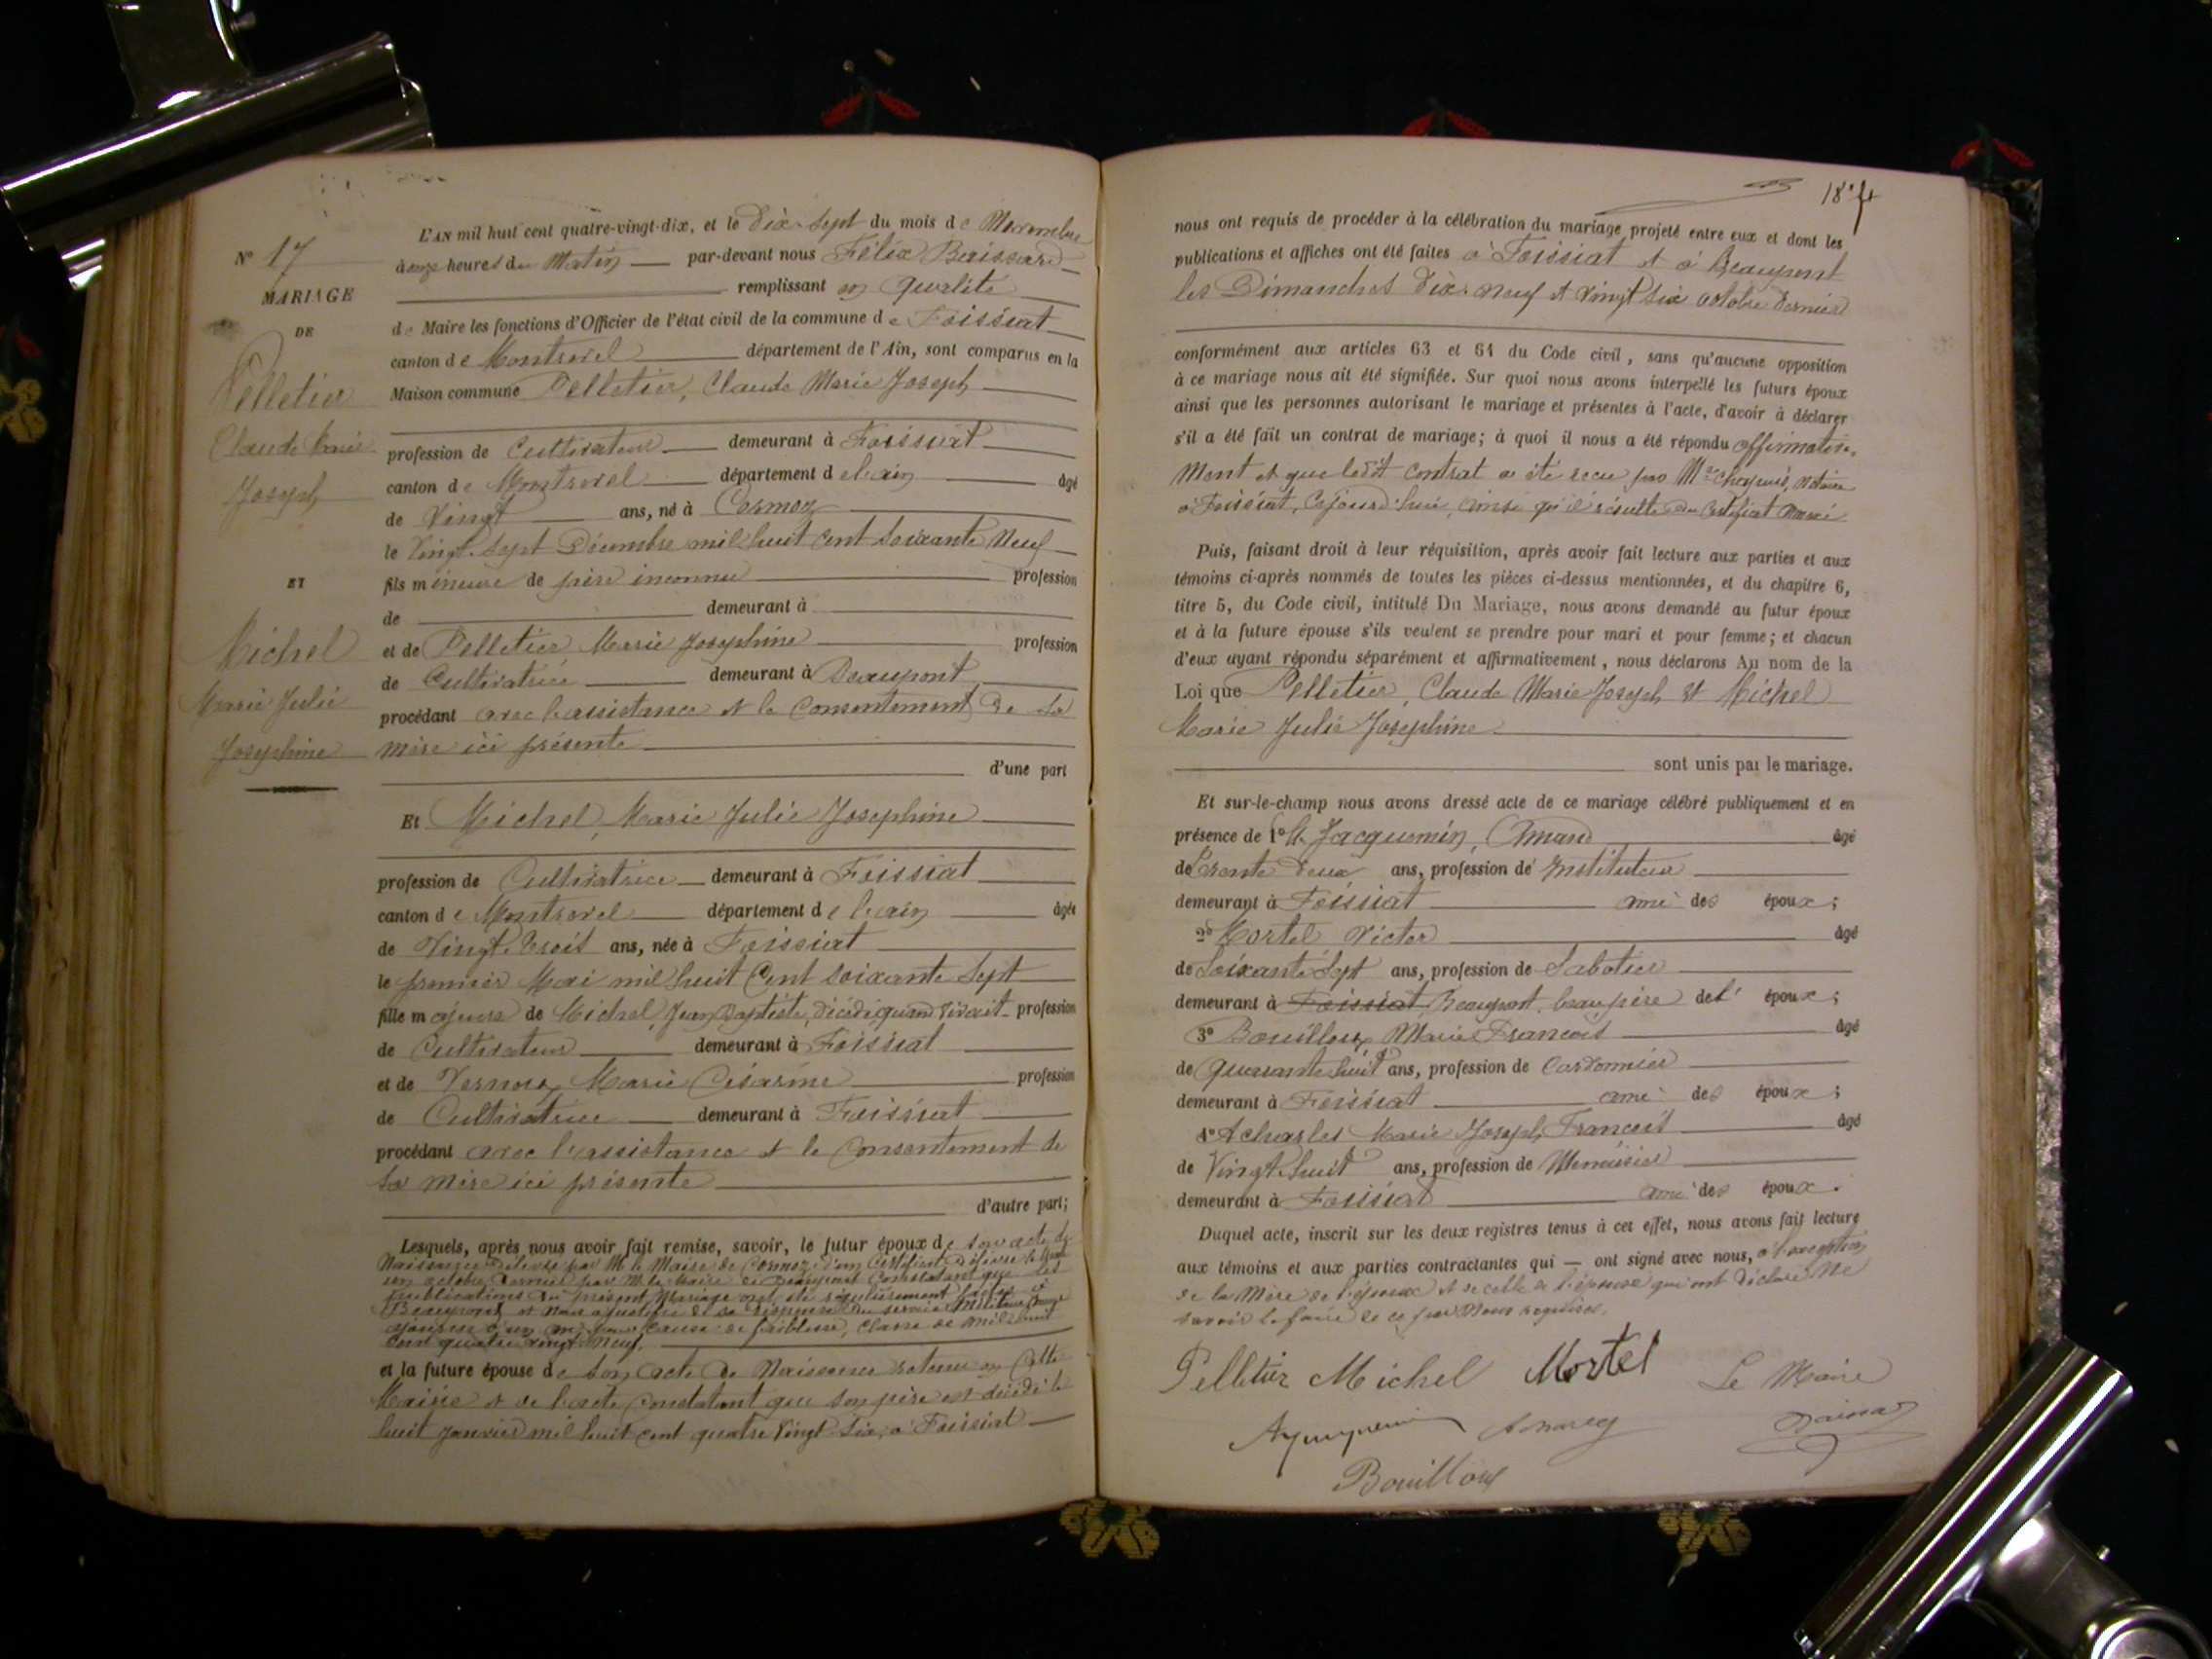 N° 17
MARIAGE
DE
Pelletier
Claude Marie
Joseph
ET
Michel
Marie Julie
Josephine
L'AN mil huit cent quatre-vingt-dix, et le Dix-Sept du mois de Novembre
à onze heures du Matin par-devant nous Félix
remplissant en qualité
de Maire les fonctions d'Officier de l'état civil de la commune de Foissiat
canton de Montrevel département de l'Ain, sont comparus en la
Maison commune Pelletier, Claude Marie Joseph
profession de Cultivateur demeurant à Foissiat
canton de Montrevel département de l'ain âgé
de Vingt ans, né à Cormoz
le Vingt-Sept Décembre mil huit cent soixante Neuf
fils mineure de père inconnu profession
de demeurant à
et de Pelletier Marie Josephine profession
de Cultivatrice demeurant à Beaupont
procédant avec l'assistance et le Consentement De sa
mère ici présente
d'une part
Et Michel, Marie Julie Josephine
profession de Cultivatrice demeurant à Foissiat
canton de Montrevel département de l'ain âgée
de Vingt-trois ans, née à Foissiat
le premier Mai mil huit Cent soixante Sept
fille majeure de Michel, Jean Baptiste, Décédé, quand vivait profession
de Cultivateur demeurant à Foissiat
et de Vernoux Marie Césarine profession
de Cultivatrice demeurant à Foissiat
procédant avec l'assistance et le Consentement de
sa mère ici présente
d'autre part;
Lesquels, après nous avoir fait remise, savoir, le futur époux de son acte de
Naissance Délivré par M. le Maire de Cormoz, d'un Certificat Délivré le
un octobre Dernier par M. le Maire de Beaupont Constatant que les
publications du présent Mariage ont été régulièrement faites à
Beaupont et nous a justifié de sa du service Militaire
ajourné d'un an pour cause de faiblesse, Classe de mil huit
cent quatre vingt Neuf.
et la future épouse de son acte de Naissance retenu en Cette
Mairie et de l'acte Constatant que son père est décédé le
huit Janvier mil huit cent quatre Vingt Six, à Foissiat
nous ont requis de procéder à la célébration du mariage projeté entre eux et dont les
publications et affiches ont été faites à Foissiat et à Beaupont
les Dimanches Dix-neuf et Vingt Six octobre Dernier
conformément aux articles 63 et 64 du Code civil, sans qu'aucune opposition
à ce mariage nous ait été signifiée. Sur quoi nous avons interpellé les futurs époux
ainsi que les personnes autorisant le mariage et présentes à l'acte, d'avoir à déclarer
s'il a été fait un contrat de mariage; à quoi il nous a été répondu affirmative-
ment et que ledit Contrat a été reçu par Me notaire
à Foissiat, Cejourd'hui, ainsi qu'il résulte du Certificat annexé
Puis, faisant droit à leur réquisition, après avoir fait lecture aux parties et aux
témoins ci-après nommés de toutes les pièces ci-dessus mentionnées, et du chapitre 6,
titre 5, du Code civil, intitulé Du Mariage, nous avons demandé au futur époux
et à la future épouse s'ils veulent se prendre pour mari et pour femme; et chacun
d'eux ayant répondu séparément et affirmativement, nous déclarons Au nom de la
Loi que Pelletier, Claude Marie Joseph et Michel
Marie Julie Josephine
sont unis par le mariage.
Et sur-le-champ nous avons dressé acte de ce mariage célébré publiquement et en
présence de 1° M. Jacquemin, Amand âgé
de Trente Deux ans, profession de Instituteur
demeurant à Foissiat ami des époux;
2° Mortel Victor âgé
de Soixante Sept ans, profession de Sabotier
demeurant à Foissiat Beaupont beau père de l' époux;
3° Bouilloux Marie Francois âgé
de Quarante huit ans, profession de Cordonnier
demeurant à Foissiat ami des époux;
4° Marie Joseph Francois âgé
de Vingt huit ans, profession de Menuisier
demeurant à Foissiat ami des époux.
Duquel acte, inscrit sur les deux registres tenus à cet effet, nous avons fait lecture
aux témoins et aux parties contractantes qui — ont signé avec nous, à l'exception
de la Mère de l'époux et de celle de l'épouse qui ont Déclaré Ne
savoir le faire de ce par Nous requises.
Pelletier Michel Mortel Le Maire
Bouilloux